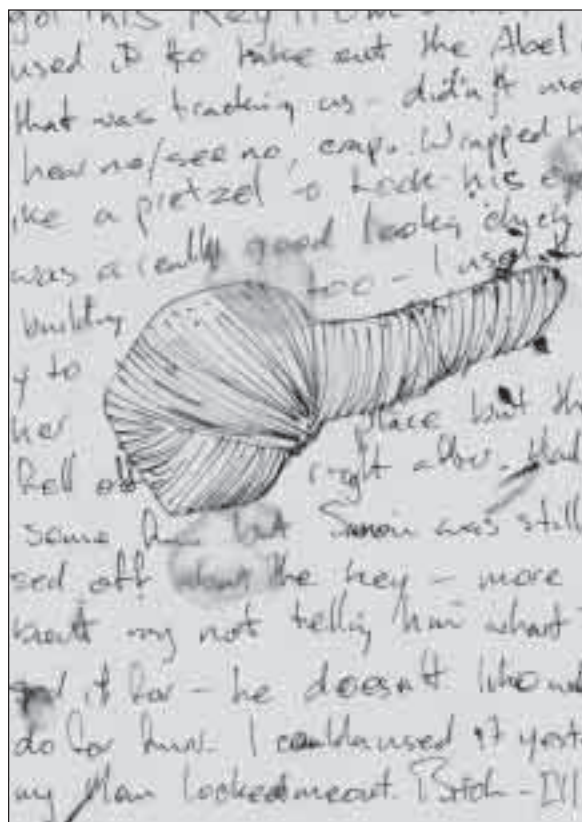 got this key from
used it to take out the Abel
that was tracking us - didn't
hear no/see no, crap. Wrapped
like a pretzel to his
was a really good looking chick
building too - I used
y to
her place but th
fell off right after. Had
some but Simon was still
sed off about the key - more
bout my not telling him what
it for - he doesn't like
do for him. I couldaused it yest
my Man lockedmeout. Bitch - I'll